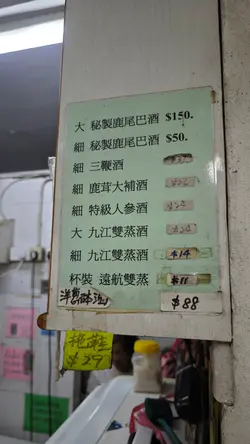 大 秘製鹿尾巴酒 $150.
細 秘製鹿尾巴酒 $50.
細 三鞭酒
細 鹿茸大補酒
細 特級人參酒
大 九江雙蒸酒
細 九江雙蒸酒 $14
杯裝 遠航雙蒸 $11
$88
拖鞋
$27